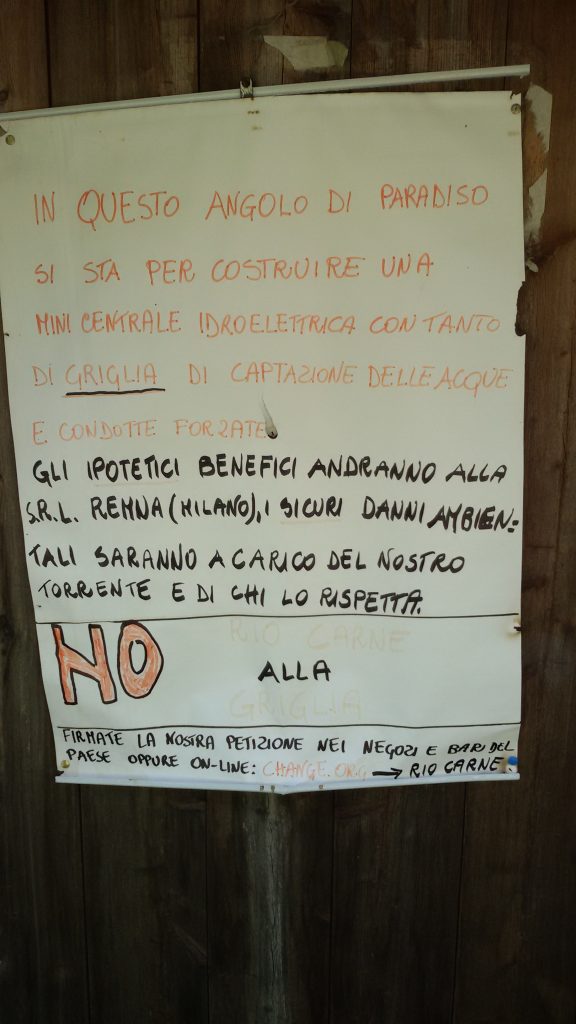 IN QUESTO ANGOLO DI PARADISO
SI STA PER COSTRUIRE UNA
MINI CENTRALE IDROELETTRICA CON TANTO
DI GRIGLIA DI CAPTAZIONE DELLE ACQUE
E CONDOTTE FORZATE.
GLI IPOTETICI BENEFICI ANDRANNO ALLA
S.R.L. REMNA (MILANO), I SICURI DANNI AMBIEN=
TALI SARANNO A CARICO DEL NOSTRO
TORRENTE E DI CHI LO RISPETTA.
RIO CARNE
NO ALLA
GRIGLIA
FIRMATE LA NOSTRA PETIZIONE NEI NEGOZI E BAR DEL
PAESE OPPURE ON-LINE: CHANGE.ORG → RIO CARNE.